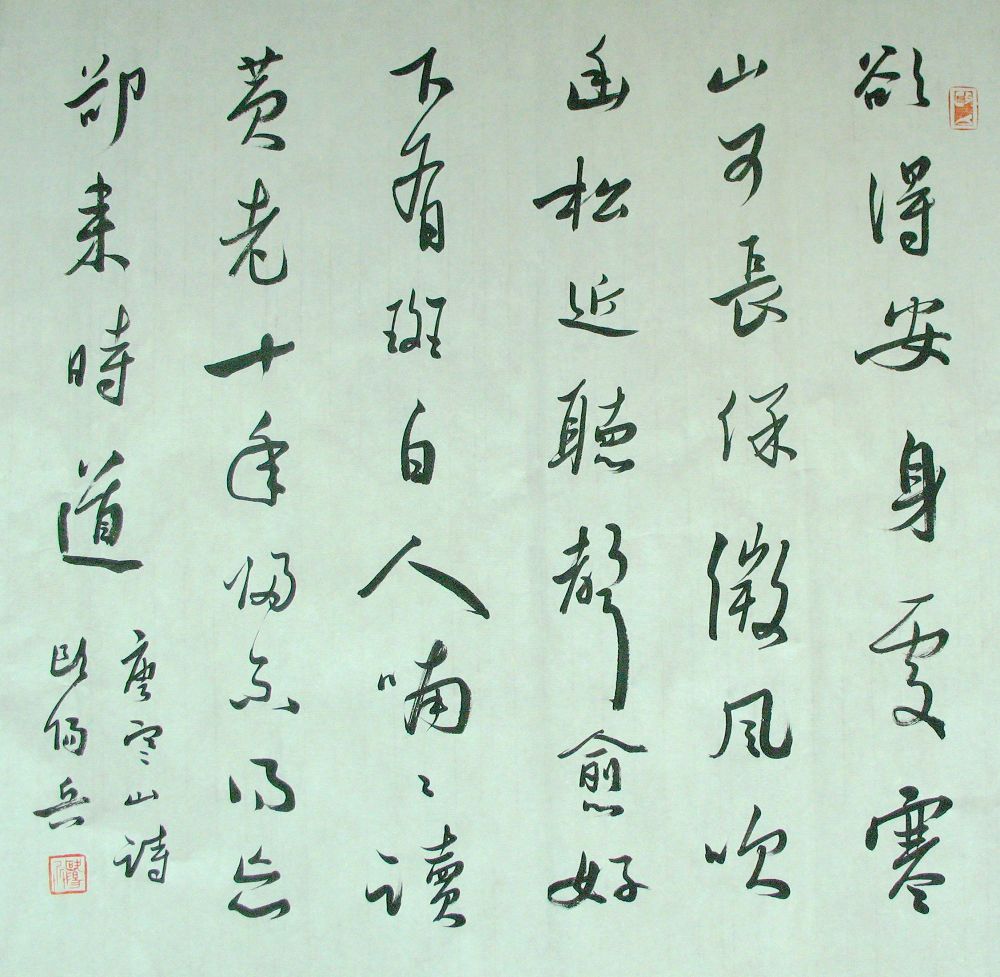 欲得安身處寒
山可長保微風吹
幽松近聽聲愈好
下有斑白人喃〻讀
黃老十年歸不得忘
卻來時道
唐寒山詩
歐陽兵